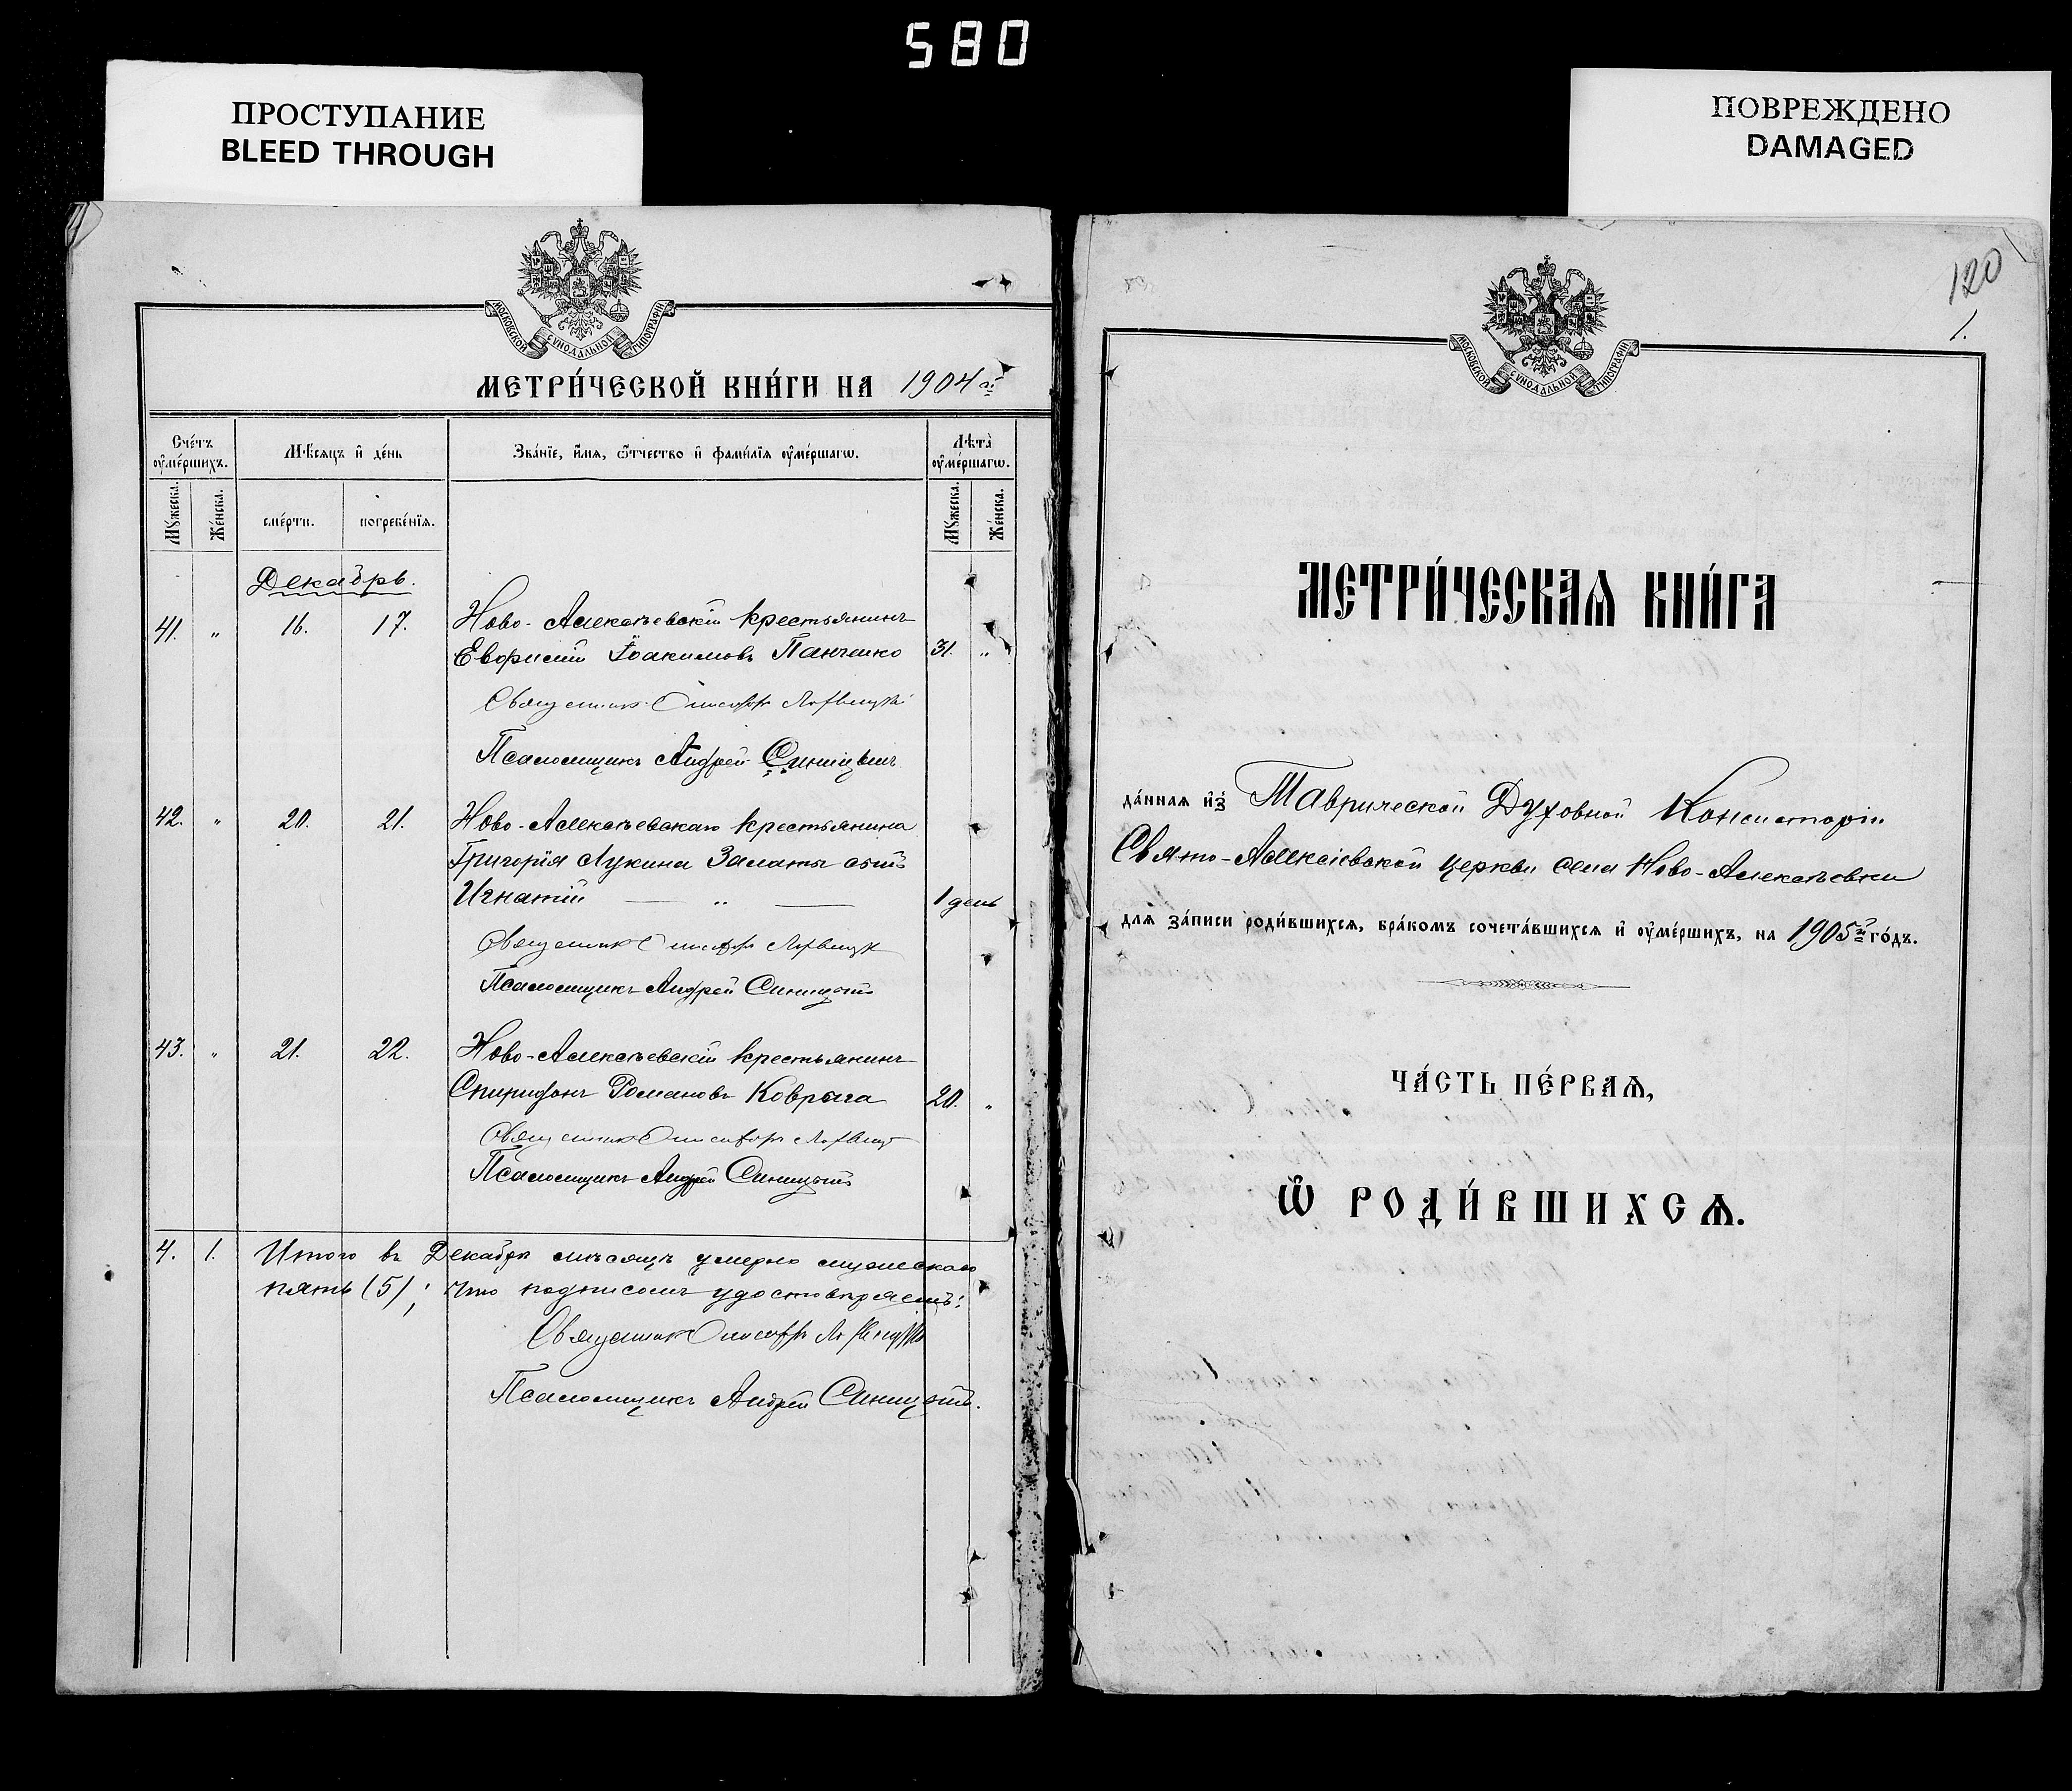 580
ПРОСТУПАНИЕ
BLEED THROUGH
ПОВРЕЖДЕНО
DAMAGED
МОСКОВСКОЙ СѴНОДАЛЬНОЙ ТИПОГРАФІИ
МЕТРИ́ЧЕСКОЙ КНИ́ГИ НА 1904 г.
Сче́тъ ᲂу҆ме́ршихъ.
Мѣ́сяцъ и҆ де́нь
Зва́нїе, и҆́мѧ, ѻ҆́тчество и҆ фами́лїѧ ᲂу҆ме́ршагѡ.
Лѣта̀ ᲂу҆ме́ршагѡ.
Мꙋ́жеска.
Же́нска.
сме́рти.
погребе́нїѧ.
Мꙋ́жеска.
Же́нска.
Декабрь.
41. " 16. 17. Ново-Алексѣевскій крестьянинъ
Іоакимовъ Панченко 31. "
Священник
Псаломщикъ Андрей Синицынъ
42. " 20. 21. Ново-Алексѣевскаго крестьянина
Григорія Лукина сынъ
Игнатій — " — 1 день
Священник
Псаломщикъ Андрей
43. " 21. 22. Ново-Алексѣевскій крестьянинъ
Спиридонъ Романовъ Коврыга 20. "
Священник
Псаломщикъ Андрей
4. 1. Итого въ Декабрѣ мѣсяцѣ умерло мужескаго
пять (5); что подписомъ удостовѣряемъ:
Священник
Псаломщикъ Андрей
120
1.
МОСКОВСКОЙ СѴНОДАЛЬНОЙ ТИПОГРАФІИ
МЕТРИ́ЧЕСКАѦ КНИ́ГА
да́нная и҆з̾ Таврической Духовной Консисторіи
Свято-Алексіевской церкви села Ново-Алексѣевки
для за́писи роди́вшихсѧ, бра́комъ сочета́вшихсѧ и҆ ᲂу҆ме́ршихъ, на 1905й го́дъ.
ЧА́СТЬ ПЕ́РВАѦ,
Ѽ РОДИ́ВШИХСѦ.